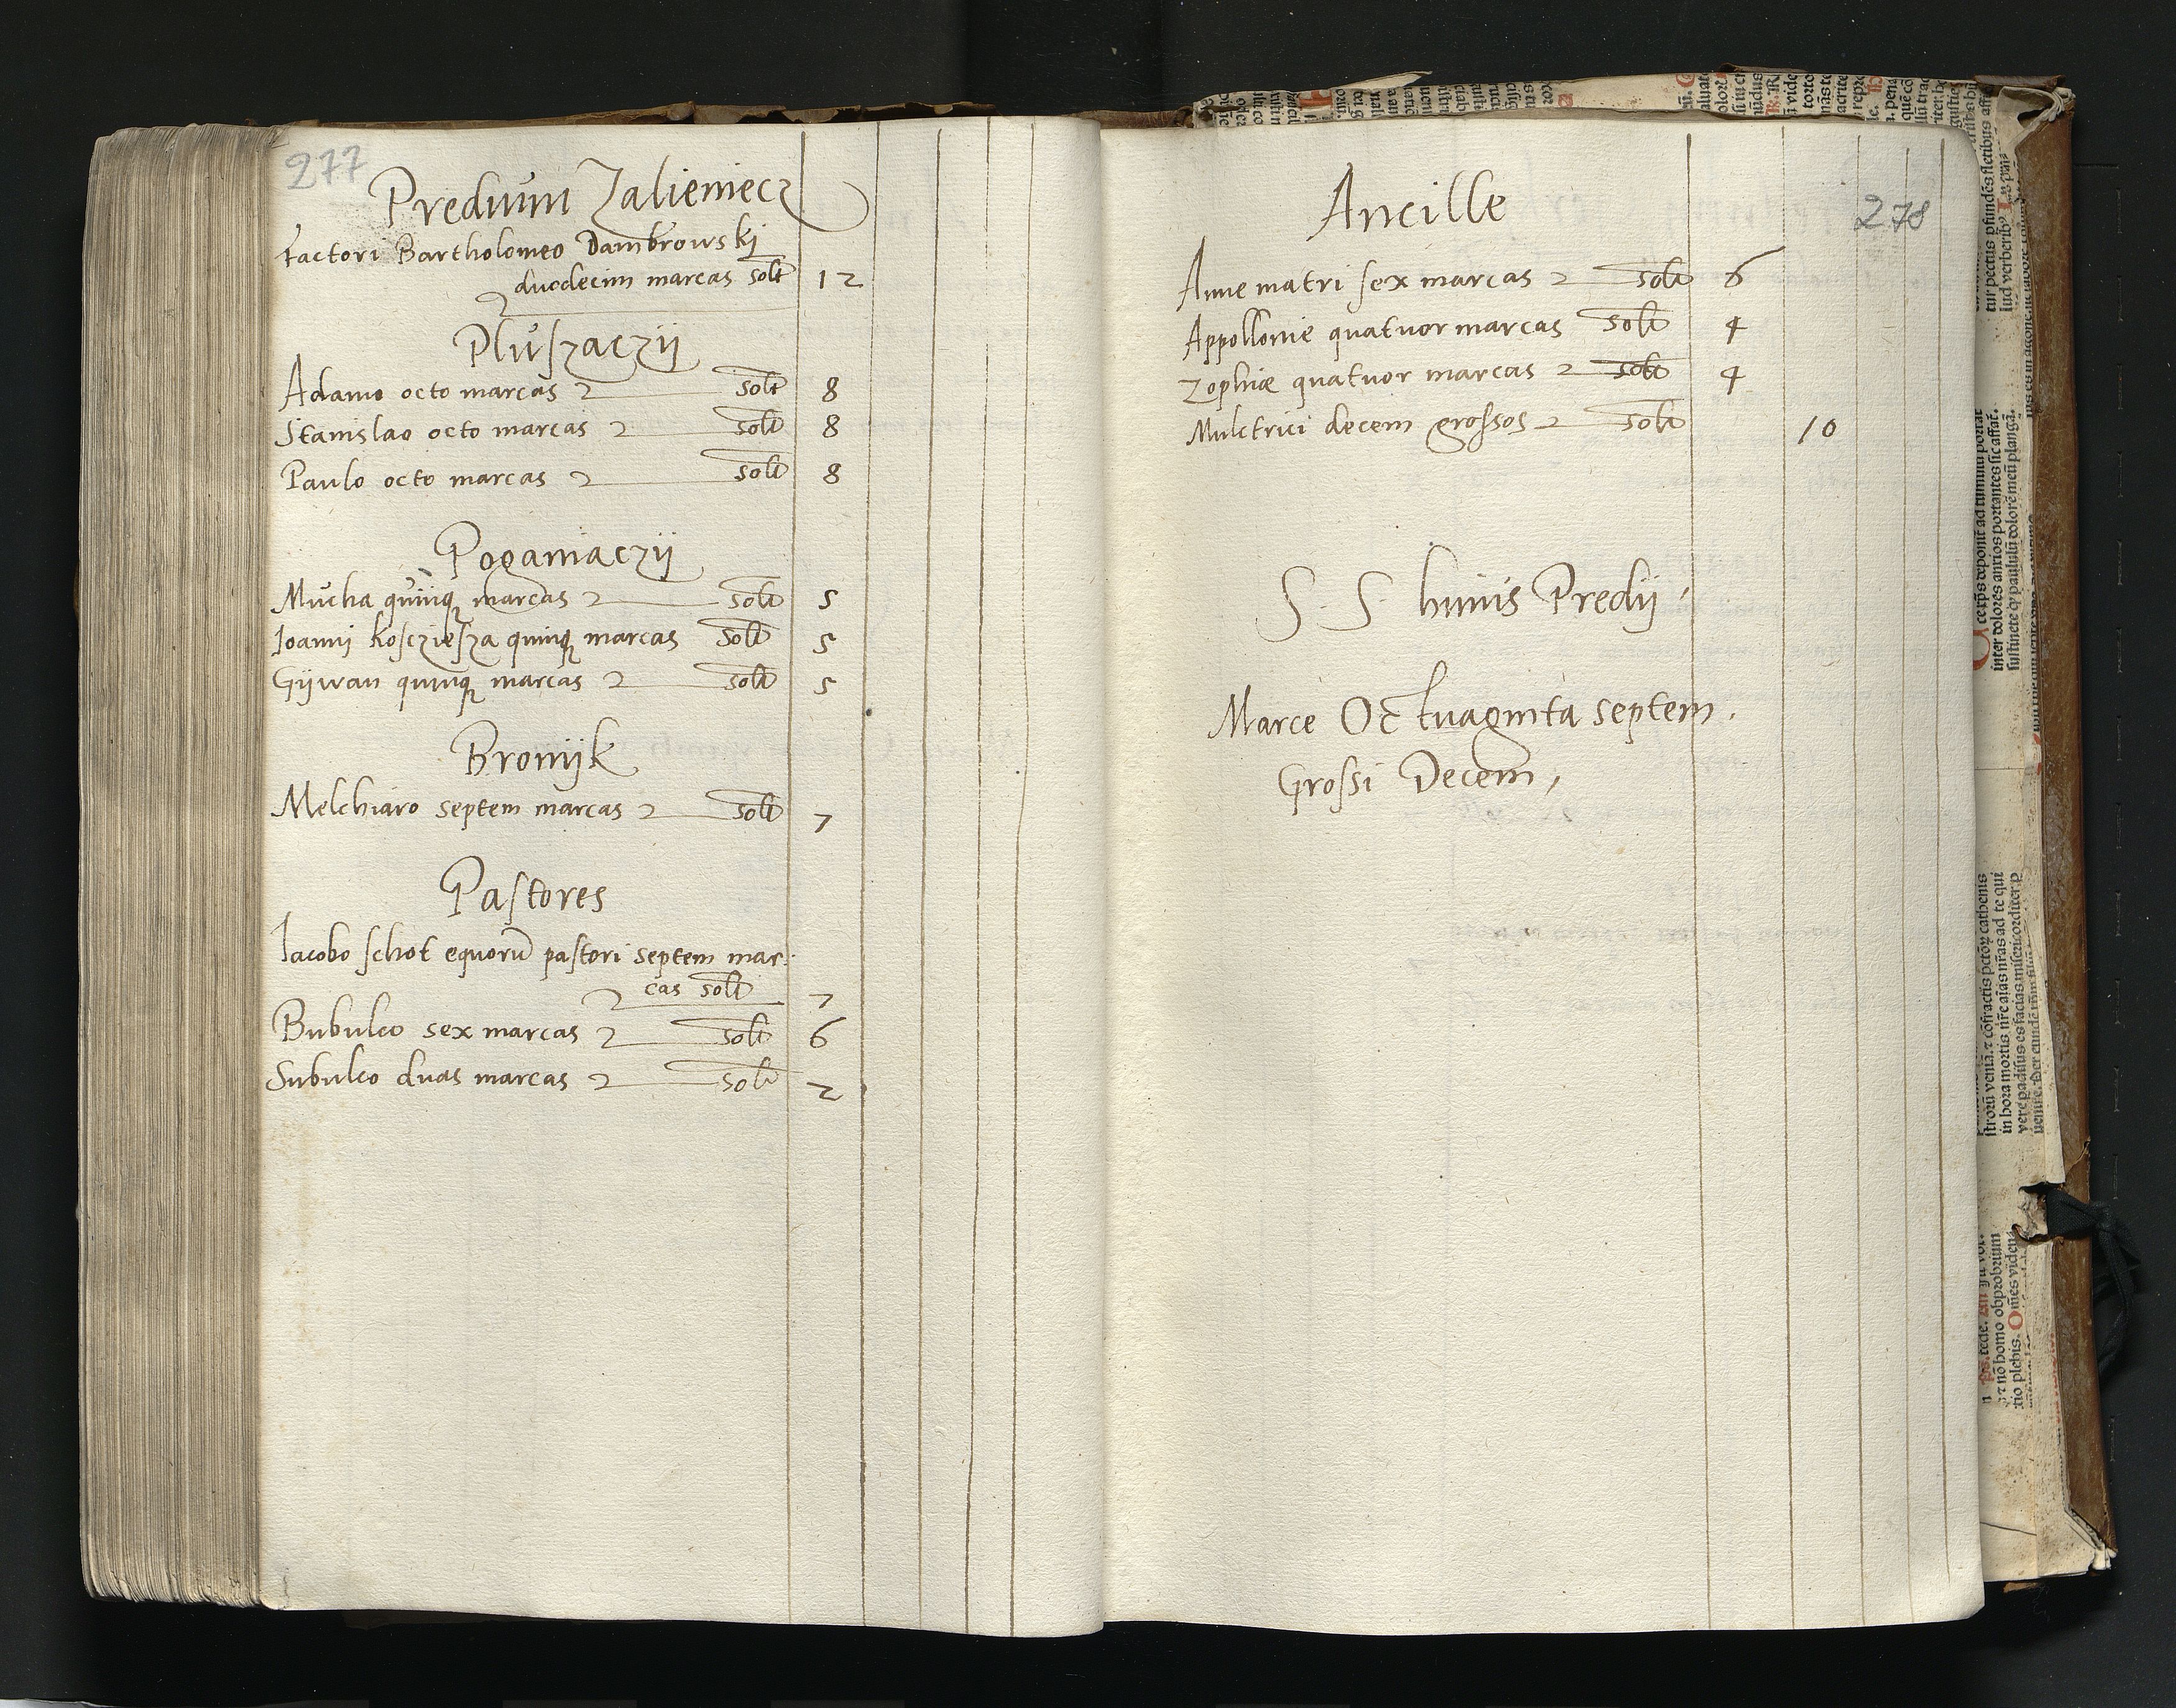 277
Predium Zalieniecz
Factori Bartholomeo Dambrowskj
duodecim marcas solt 12
Pluszaczÿ
Adamo octo marcas solt 8
Stanislao octo marcas solt 8
Paulo octo marcas solt 8
Poganiaczÿ
Mucha quinq marcas solt 5
Joanni Koscziesza quinq marcas solt 5
Gÿwan quinq marcas solt 5
Bronÿk
Melchiaro septem marcas solt 7
Pastores
Jacobo schot equorū pastori septem mar:
cas solt 7
Bubulco sex marcas solt 6
Subulco duas marcas solt 2
278
Ancille
Anne matri sex marcas solt 6
Appollonie quatuor marcas solt 4
Zophiæ quatuor marcas solt 4
Mulctrici decem grossos solt 10
S. S. huius Predij
Marce Octuaginta septem.
Grossi Decem,